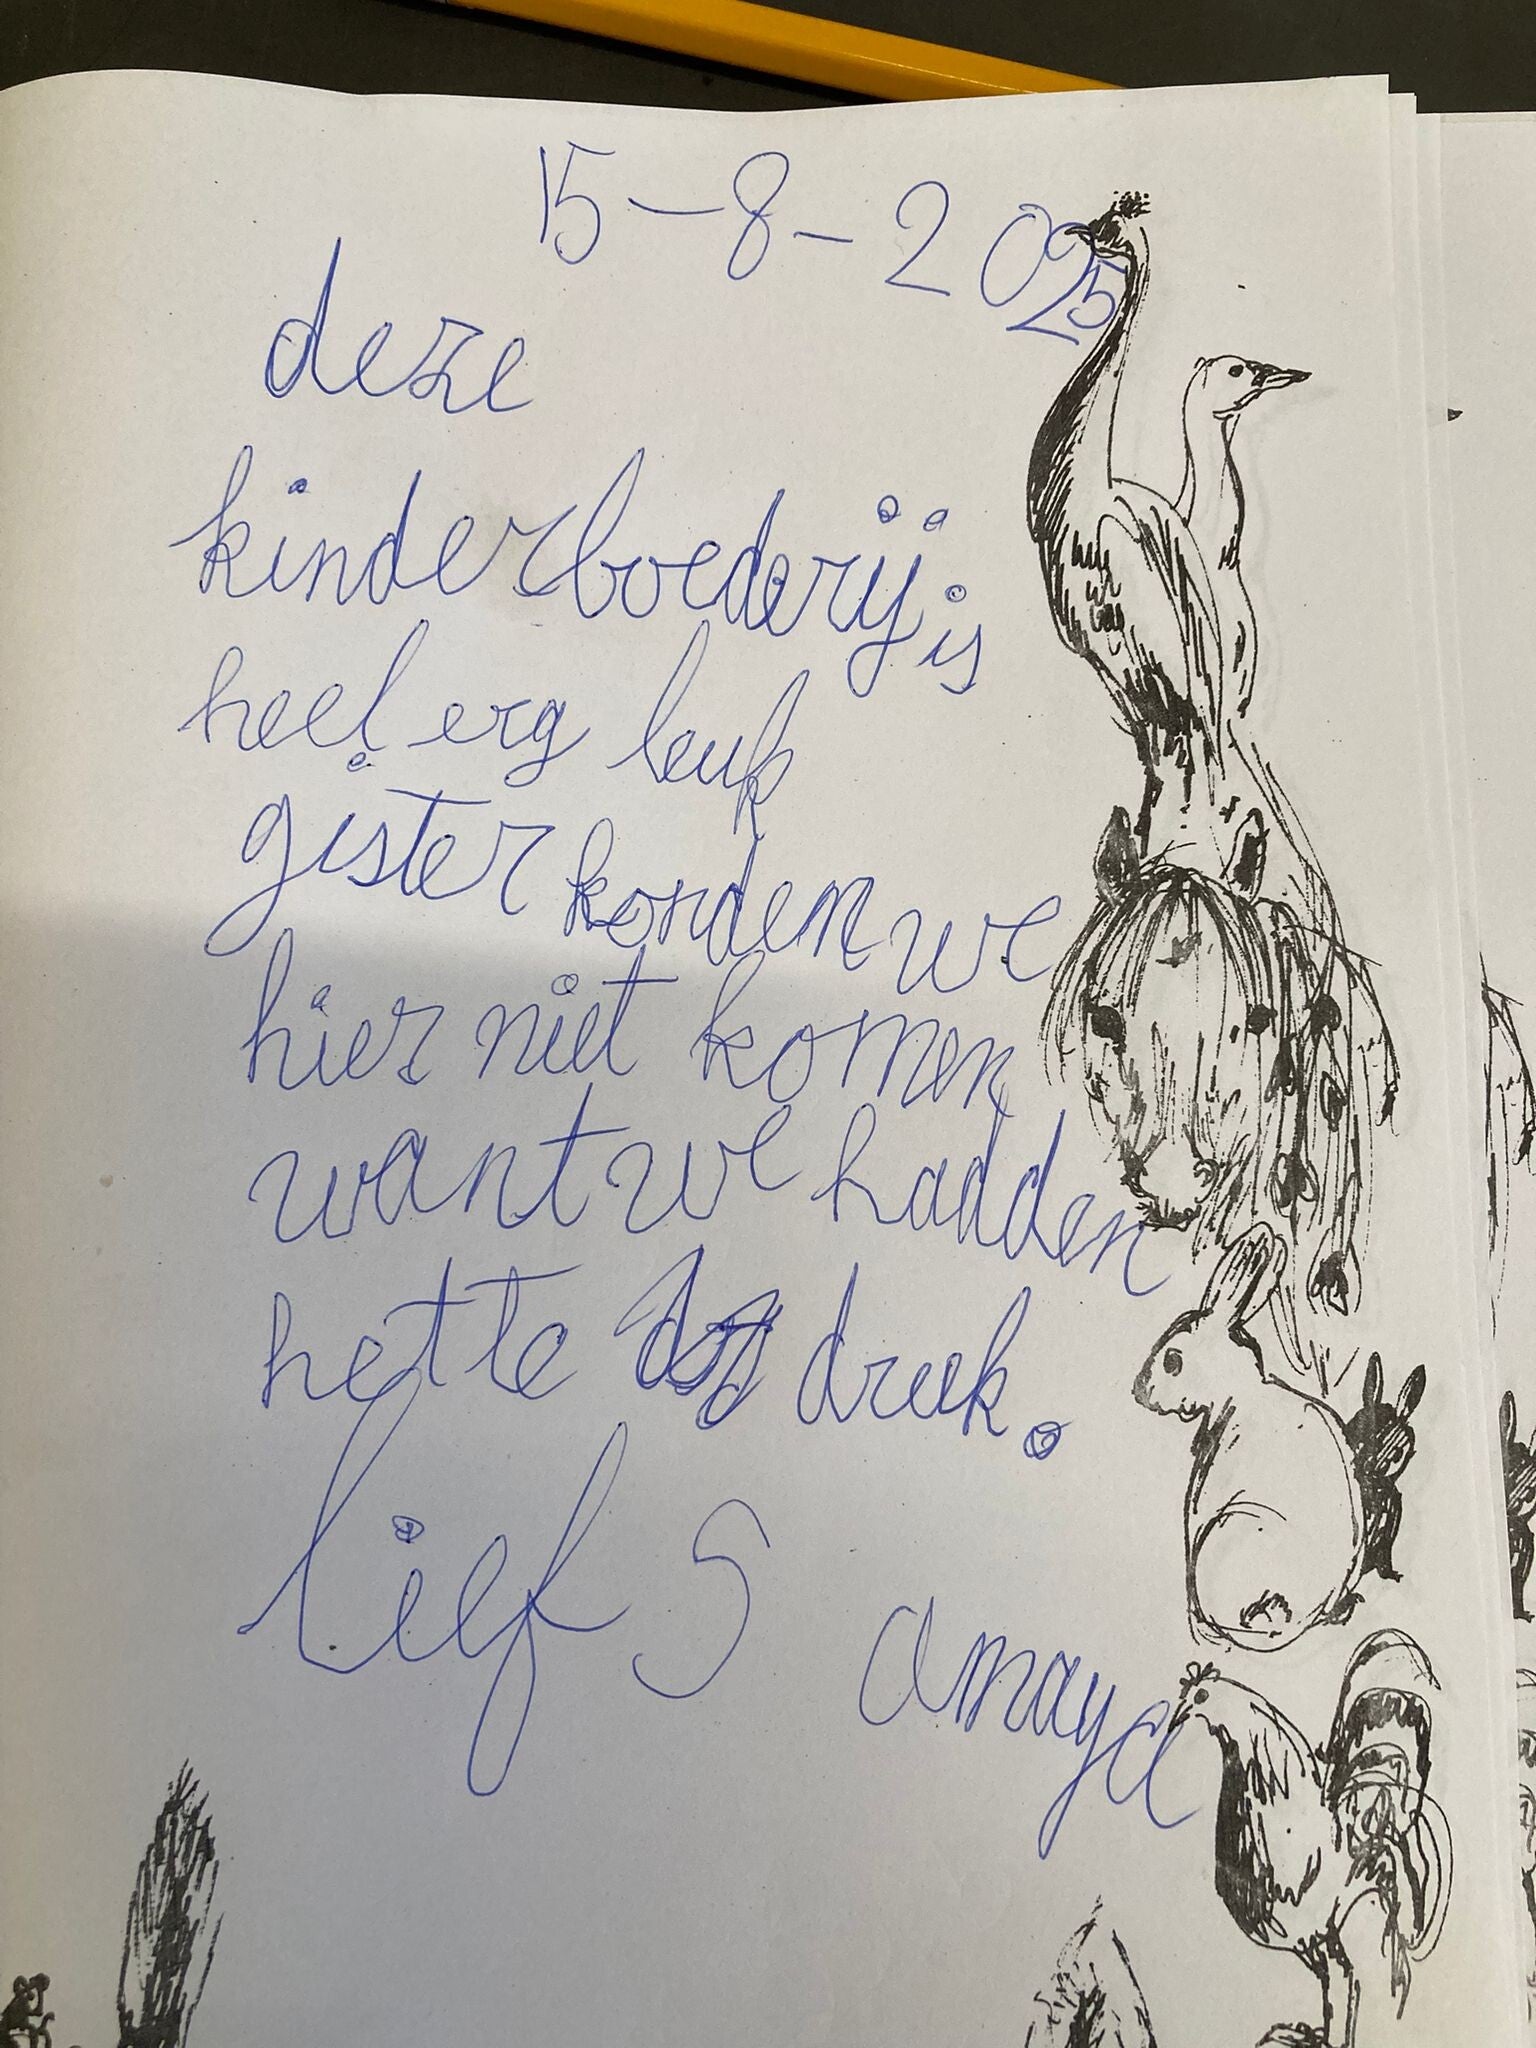 15-8-2025
deze
kinderboederij is
heel erg leuk
gister konden we
hier niet komen
want we hadden
het te druk.
liefs amaya